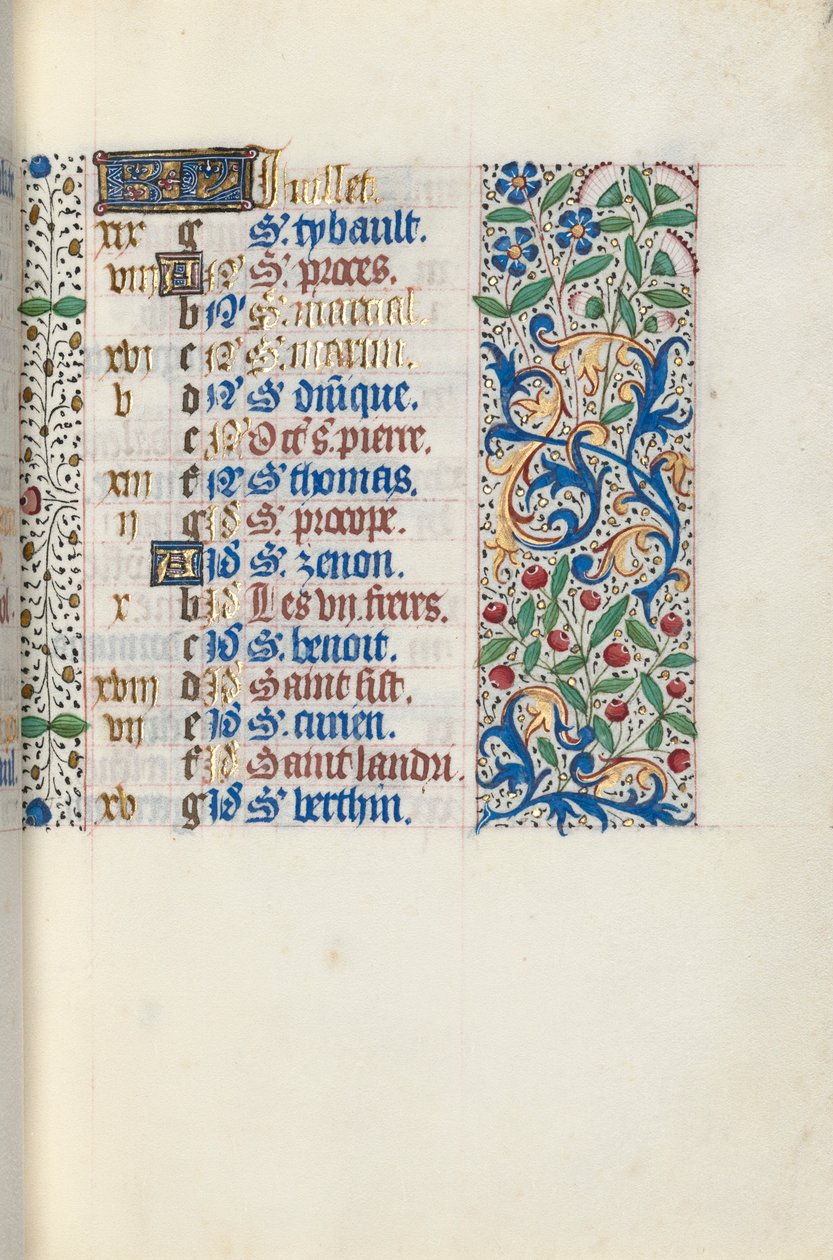 KL Iuillet.
xix g S. tybault.
viii A N S. proces.
b N S. marcial.
xvi c N S. martin.
v d N S. dñique.
e N Oct s. pierre.
xiii f N S. thomas.
ii g id S. procope.
A id S. zenon.
x b id Les vii. freres.
c id S. benoit.
xviii d id Saint sist.
vii e id S. cirien.
f id Saint landri.
xv g id S. berthin.